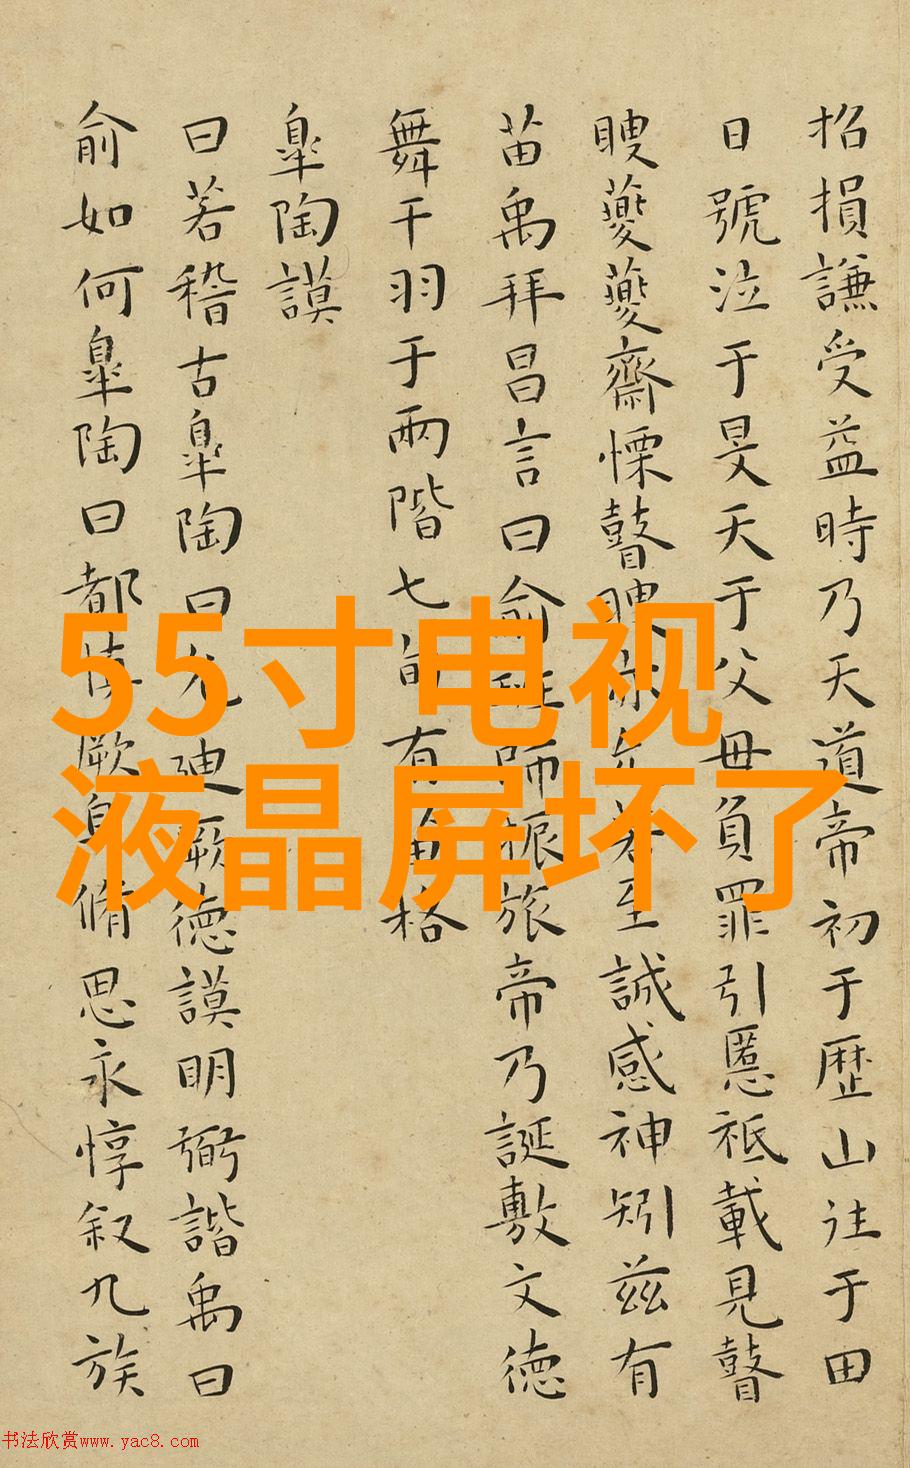 招損謙受益時乃天道帝初于歷山往于田
日號泣于旻天于父母負罪引慝祗載見瞽
瞍夔夔齋慄瞽瞍亦允若至誠感神矧茲有
苗禹拜昌言曰俞班師振旅帝乃誕敷文德
舞干羽于兩階七旬有苗格
皐陶謨
曰若稽古皐陶曰允迪厥德謨明弼諧禹曰
俞如何皐陶曰都慎厥身脩思永惇叙九族
55寸电视
液晶屏坏了
书法欣赏www.yac8.com